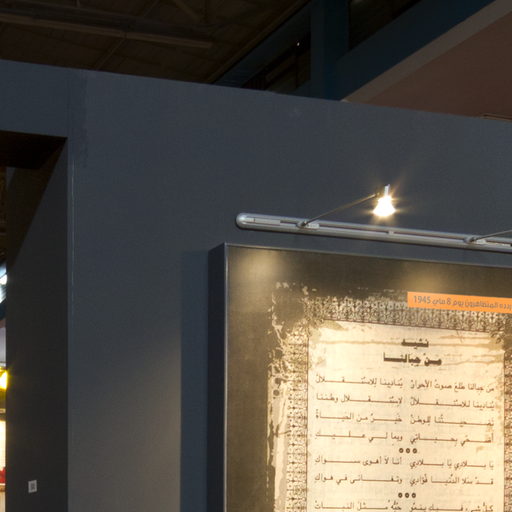 ردده المتظاهرون يوم 8 ماي 1945
نشيد
من جبالنا
من جبالنا طلع صوت الأحرار ينادينا للاستقلال
ينادينا للاستقلال لاستقلال وطننا
تضحيتنا للوطن خير من الحياة
أضحي بحياتي وبما لي عليك
يا بلادي يا بلادي أنا لا أهوى سواك
قد سلا الدنيا فؤادي وتفانى في هواك